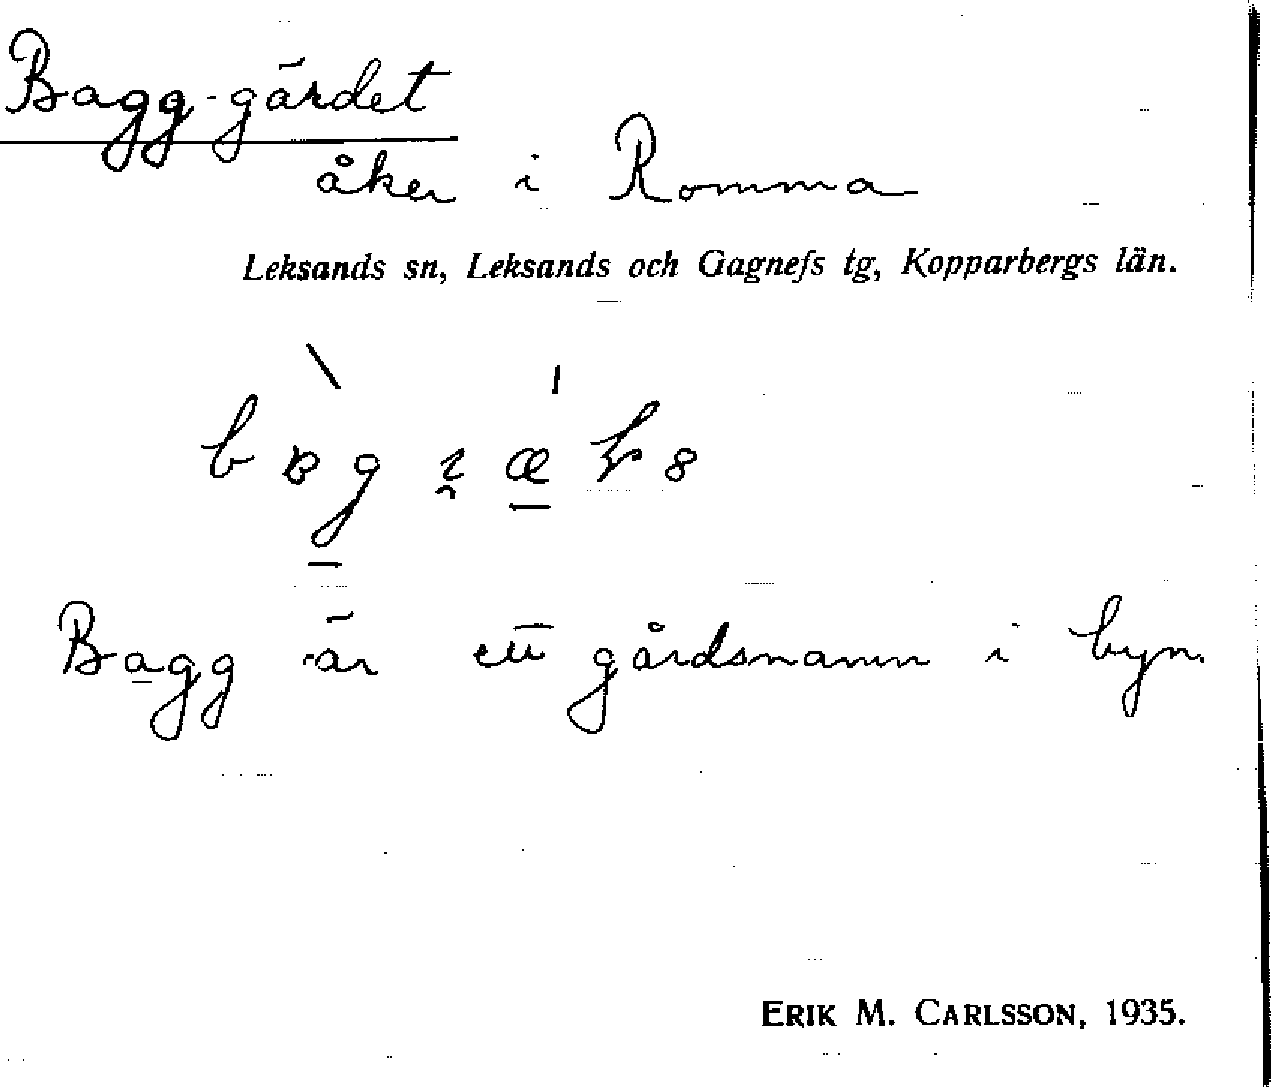 Bagg-gärdet
åker i Romma
Leksands sn, Leksands och Gagnefs tg, Kopparbergs län.
Bagg är ett gårdsnamn i byn.
ERIK M. CARLSSON, 1935.